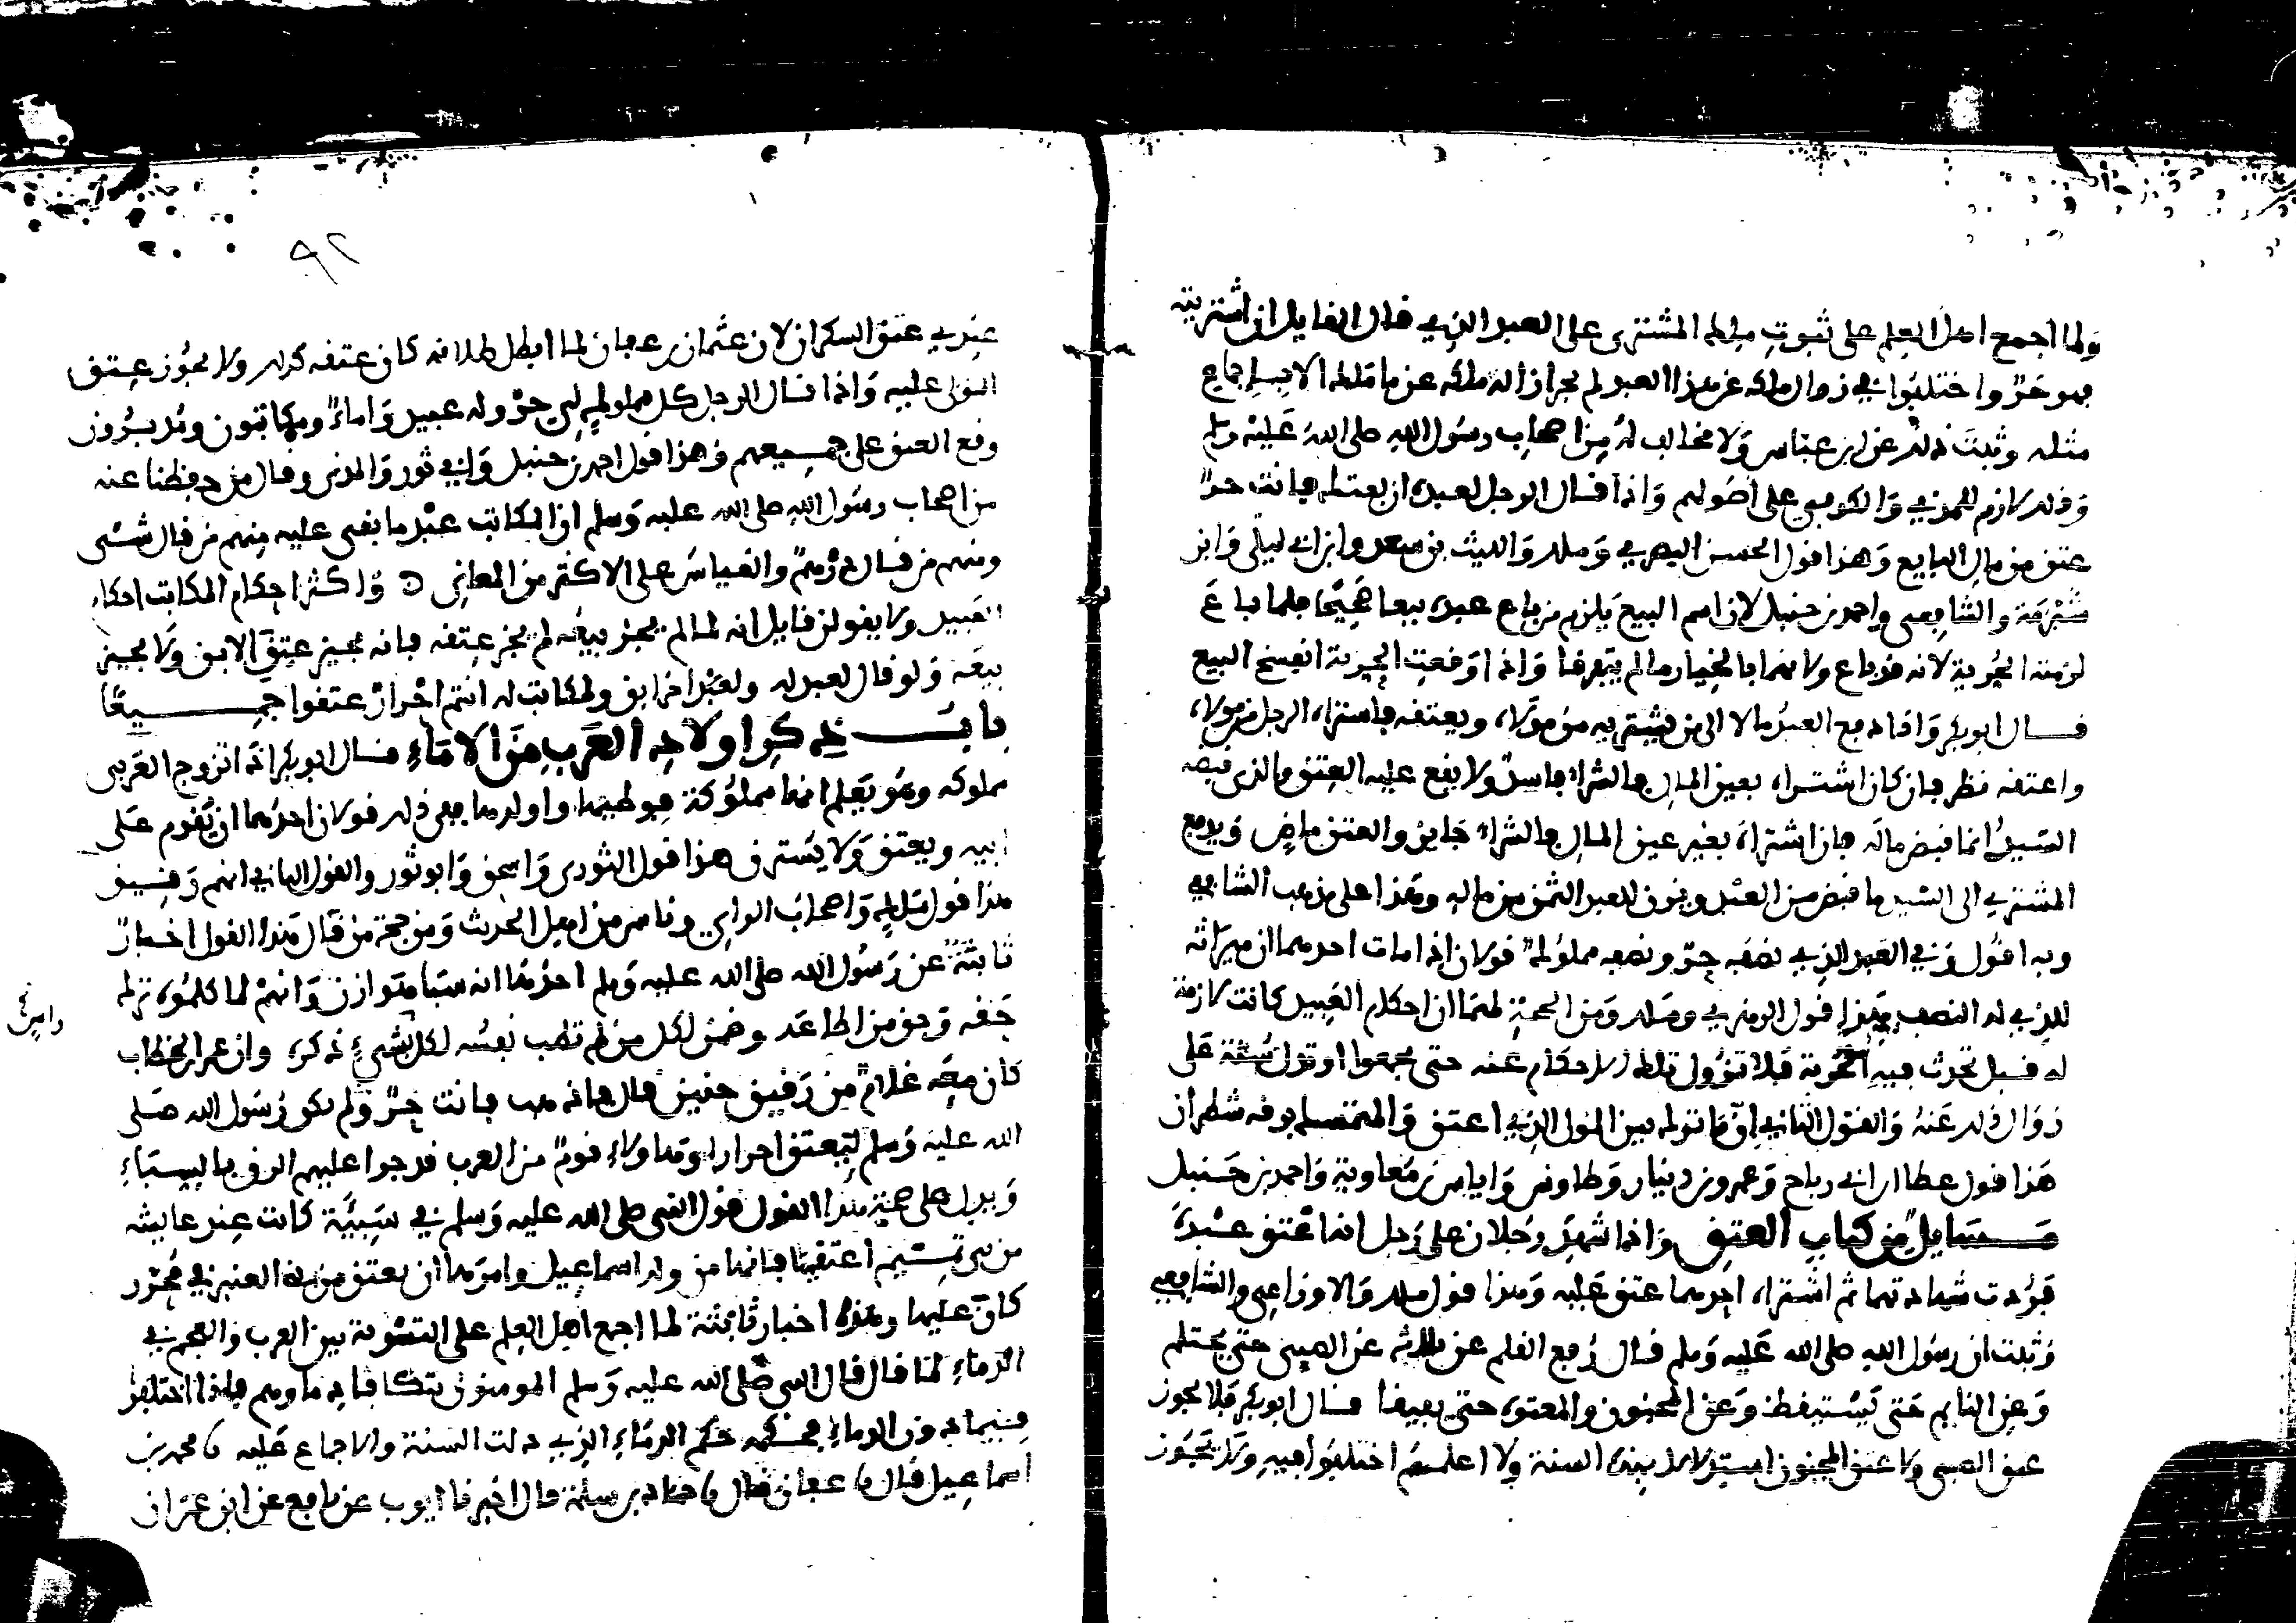 ولما اجمع اهل العلم على ثبوت ملك المشتري على العبد الذي قال القايل ان اشتريته
فهو حر واختلفوا في زوال ملكه عن هذا العبد لم يجز ازالة ملكه عن ما ملكه الا باجماع
مثله وثبت ذلك عن ابن عباس ولا مخالف له من اصحاب رسول الله صلى الله عليه وسلم
وذلك لازم للمدني والكوفي على اصولهم واذا قال الرجل لعبده ان بعتك فانت حر
عتق من مال البايع وهذا قول الحسن البصري وملك والليث بن سعد وابن ابي ليلى وابن
شبرمة والشافعي واحمد بن حنبل لان اسم البيع يلزم من باع عبده بيعا صحيحا فلما باع
لزمته الحرية لانه قد باع ولانهما بالخيار ما لم يتفرقا واذا وقعت الحرية انفسخ البيع
قال ابو بكر واذا دفع العبد مالا الى من يشتريه من مولاه ويعتقه فاشتراه الرجل من مولاه
واعتقه نظر فان كان اشتراه بعين المال فالشراء فاسد ولا يقع عليه العتق والذي قبضه
السيد انما قبض ماله فان اشتراه بغير عين المال فالشراء جايز والعتق ماض ويدفع
المشتري الى السيد ما قبض من العبد ويزن للعبد الثمن من ماله وهذا على مذهب الشافعي
وبه اقول وفي العبد الذي نصفه حر ونصفه مملوك قولان اذا مات احدهما ان ميراثه
للذي له النصف هذا قول الزهري وملك ومن الحجة لهما ان احكام العبيد كانت لازمة
له قبل تحدث فيه الحرية فلا تزول تلك الاحكام عنه حتى يجمعوا او تدل سنة على
زوال ذلك عنه والقول الثاني ان ما ترك بين المولى الذي اعتق والمتمسك برقه شطران
هذا قول عطا ابن ابي رباح وعمرو بن دينار وطاوس واياس بن معاوية واحمد بن حنبل
مسايل من كتاب العتق واذا شهد رجلان على رجل انه اعتق عبده
فردت شهادتهما ثم اشتراه احدهما عتق عليه وهذا قول ملك والاوزاعي والشافعي
وثبت ان رسول الله صلى الله عليه وسلم قال رفع القلم عن ثلاثة عن الصبي حتى يحتلم
وعن النايم حتى يستيقظ وعن المجنون والمعتوه حتى يفيقا قال ابو بكر فلا يجوز
عتق الصبي ولا عتق المجنون استدلالا بهذه السنة ولا اعلمهم اختلفوا فيه ولا يجوز
٩٢
عندي عتق السكران لان عثمان بن عفان لما ابطل طلاقه كان عتقه كذلك ولا يجوز عتق
المولى عليه واذا قال الرجل كل مملوك لي حر وله عبيد واماء ومكاتبون ومدبرون
وقع العتق على جميعهم وهذا قول احمد بن حنبل وابي ثور والمزني وقال من حفظنا عنه
من اصحاب رسول الله صلى الله عليه وسلم ان المكاتب عبد ما بقي عليه منهم من قال شيء
ومنهم من قال درهم والقياس على الاكثر من المعاني واكثر احكام المكاتب احكام
العبيد ولا يقولن قايل انه لما لم يجز بيعه لم يجز عتقه فانه يجيز عتق الابق ولا يجيز
بيعه ولو قال لعبد له ولعبد اخر ابق ولمكاتب له انتم احرار عتقوا جميعا
باب ذكر اولاد العرب من الاماء قال ابو بكر اذا تزوج العربي
مملوكه وهو يعلم انها مملوكة فوطيها واولدها ففي ذلك قولان احدهما ان يقوم على
ابيه ويعتق ولا يسترق هذا قول الثوري واسحق وابو ثور والقول الثاني انهم رقيق
هذا قول ملك واصحاب الراي وناس من اهل الحديث ومن حجة من قال هذا القول اخبار
ثابتة عن رسول الله صلى الله عليه وسلم احدها انه سبا هوازن وانهم لما كلموه ترك
حقه وحق من اطاعه وضمن لكل من لم تطب نفسه لكل شيء ذكره وان عمر ابن الخطاب
كان معه غلام من رقيق حنين قال فاذهب فانت حر ولم يكن رسول الله صلى
الله عليه وسلم ليعتق احرارا وهاولاء قوم من العرب قد جرا عليهم الرق بالسباء
ويدل على صحة هذا القول قول النبي صلى الله عليه وسلم في سبية كانت عند عايشة
من بني تميم اعتقيها فانها من ولد اسماعيل وامرها ان يعتق من بني العنبر في محرر
كان عليها وهذه اخبار ثابتة لما اجمع اهل العلم على التسوية بين العرب والعجم في
الدماء لما قال النبي صلى الله عليه وسلم المومنون تتكافا دماوهم فاذا اختلفوا
فيما دون الدماء فحكمه حكم الدماء الذي دلت السنة والاجماع عليه نا محمد بن
اسماعيل قال نا عفان قال نا حماد بن سلمة قال اخبرنا ايوب عن نافع عن ابن عمر ان